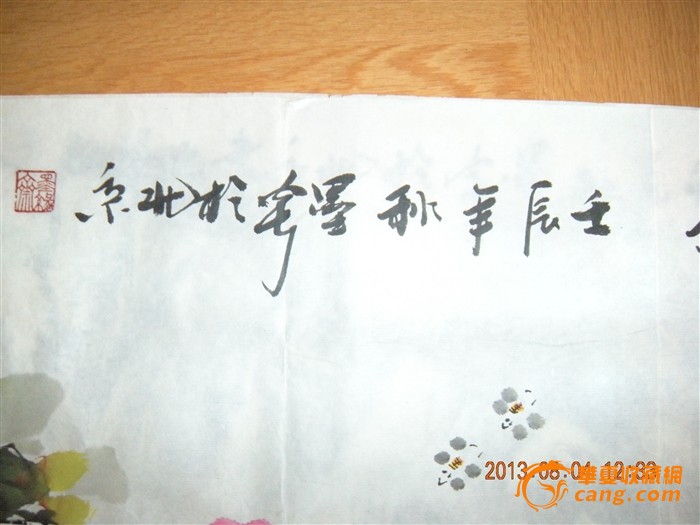 壬辰年秋墨於北京
2013.08.04 12:33
華夏收藏網
cang.com